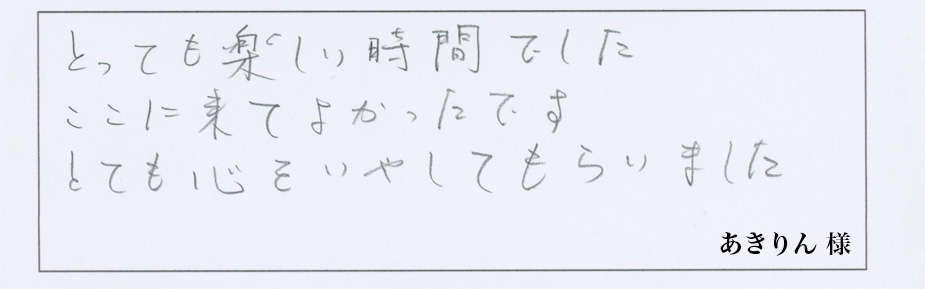 とっても楽しい時間でした
ここに来てよかったです
とても心をいやしてもらいました
あきりん 様